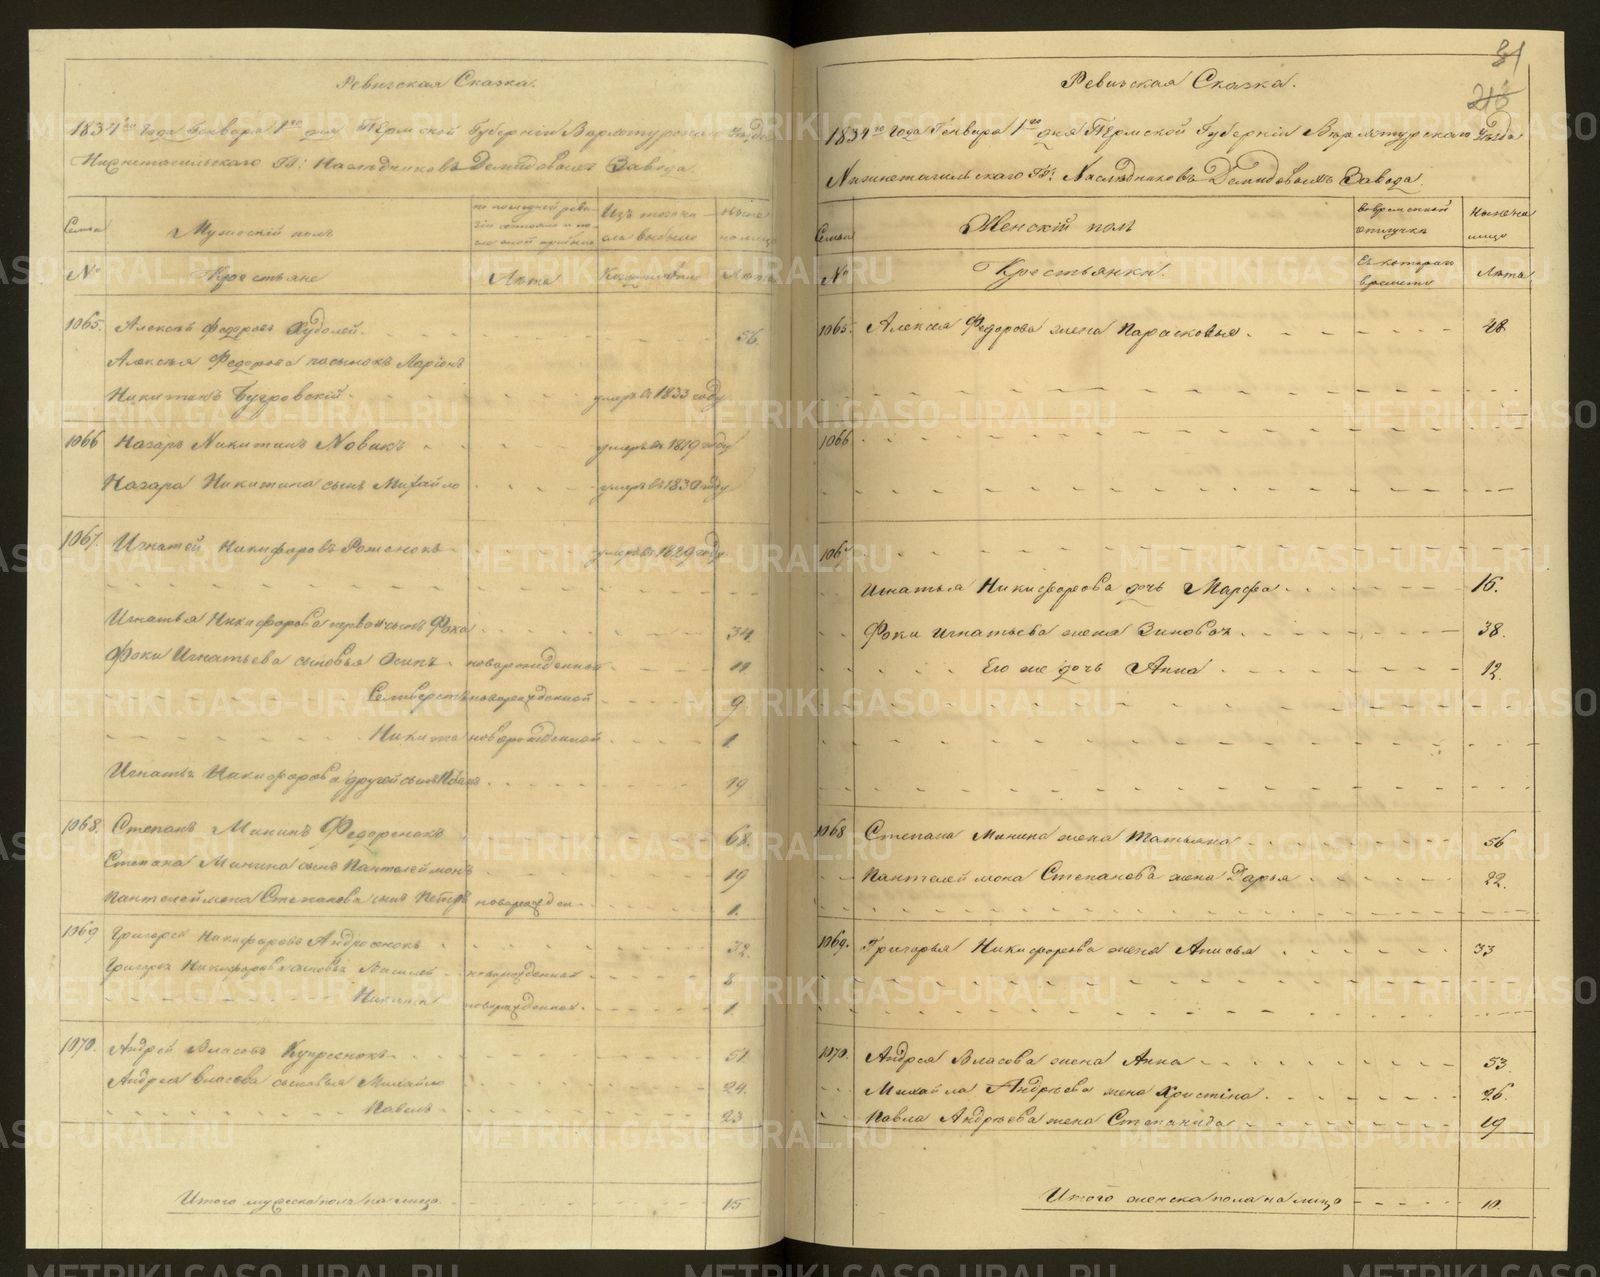 Ревизская Сказка.
1834го года Генваря 1го дня Пермской Губернии Верхотурского Уезда
Нижнетагильского Гг: Наследниковъ Демидовыхъ Завода.
Семьи
Мужескій полъ
по последней реви-
Изъ того числа
выбыло
ныне
на лицо
№
Крестьяне
Лѣта
Когда именно
Лѣта
1065. Алексѣй Федоровъ Худолей. 56.
Алексѣя Федорова пасынокъ Ларіонъ
Никитинъ Бугровскій. умеръ въ 1833 году
1066 Назаръ Никитинъ Новикъ умеръ въ 1819 году
Назара Никитина сынъ Михайло умеръ въ 1830 году
1067. Игнатей Никифоровъ умеръ въ 1829 году
Игнатья Никифорова первой сынъ Фока 34.
Фоки Игнатьева сыновья Осипъ новорожденной 11.
Селиверстъ новорожденной 9
Никита новорожденной 1
Игнатья Никифорова другой сынъ 19
1068. Степанъ Мининъ Федоренокъ 68.
Степана Минина сынъ Пантелеймонъ 19
Пантелеймона Степанова сынъ Петръ новорожден. 1.
1069 Григорей Никифоровъ Андросенокъ 32.
Григорья Никифорова сыновья Василей новорожденной 8
Никита новорожденной. 1.
1070. Андрей Власовъ Купреенокъ 51
Андрея Власова сыновья Михайло 24.
Павелъ 23
Итого мужеска пола на лицо 15
81
213
Ревизская Сказка.
1834го года Генваря 1го дня Пермской Губерніи Верхотурскаго Уезда
Нижнетагильскаго Гг: Наследниковъ Демидовыхъ Завода.
Семьи
Женскій полъ
во временной
отлучке
Ныне на
лицо
№
Крестьянки.
Съ котораго
времени
Лѣта
1065. Алексѣя Федорова жена Парасковья. 48.
1066
1067
Игнатья Никифорова дочь Марфа 16.
Фоки Игнатьева жена Зиновья 38.
Его же дочь Анна 12.
1068 Степана Минина жена Татьяна 56
Пантелеймона Степанова жена Дарья 22.
1069. Григорья Никифорова жена Анисья 33
1070. Андрея Власова жена Анна 53.
Михайла Андрѣева жена Христина 26.
Павла Андрѣева жена Степанида 19
Итого женска пола на лицо 10.
METRIKI.GASO-URAL.RU